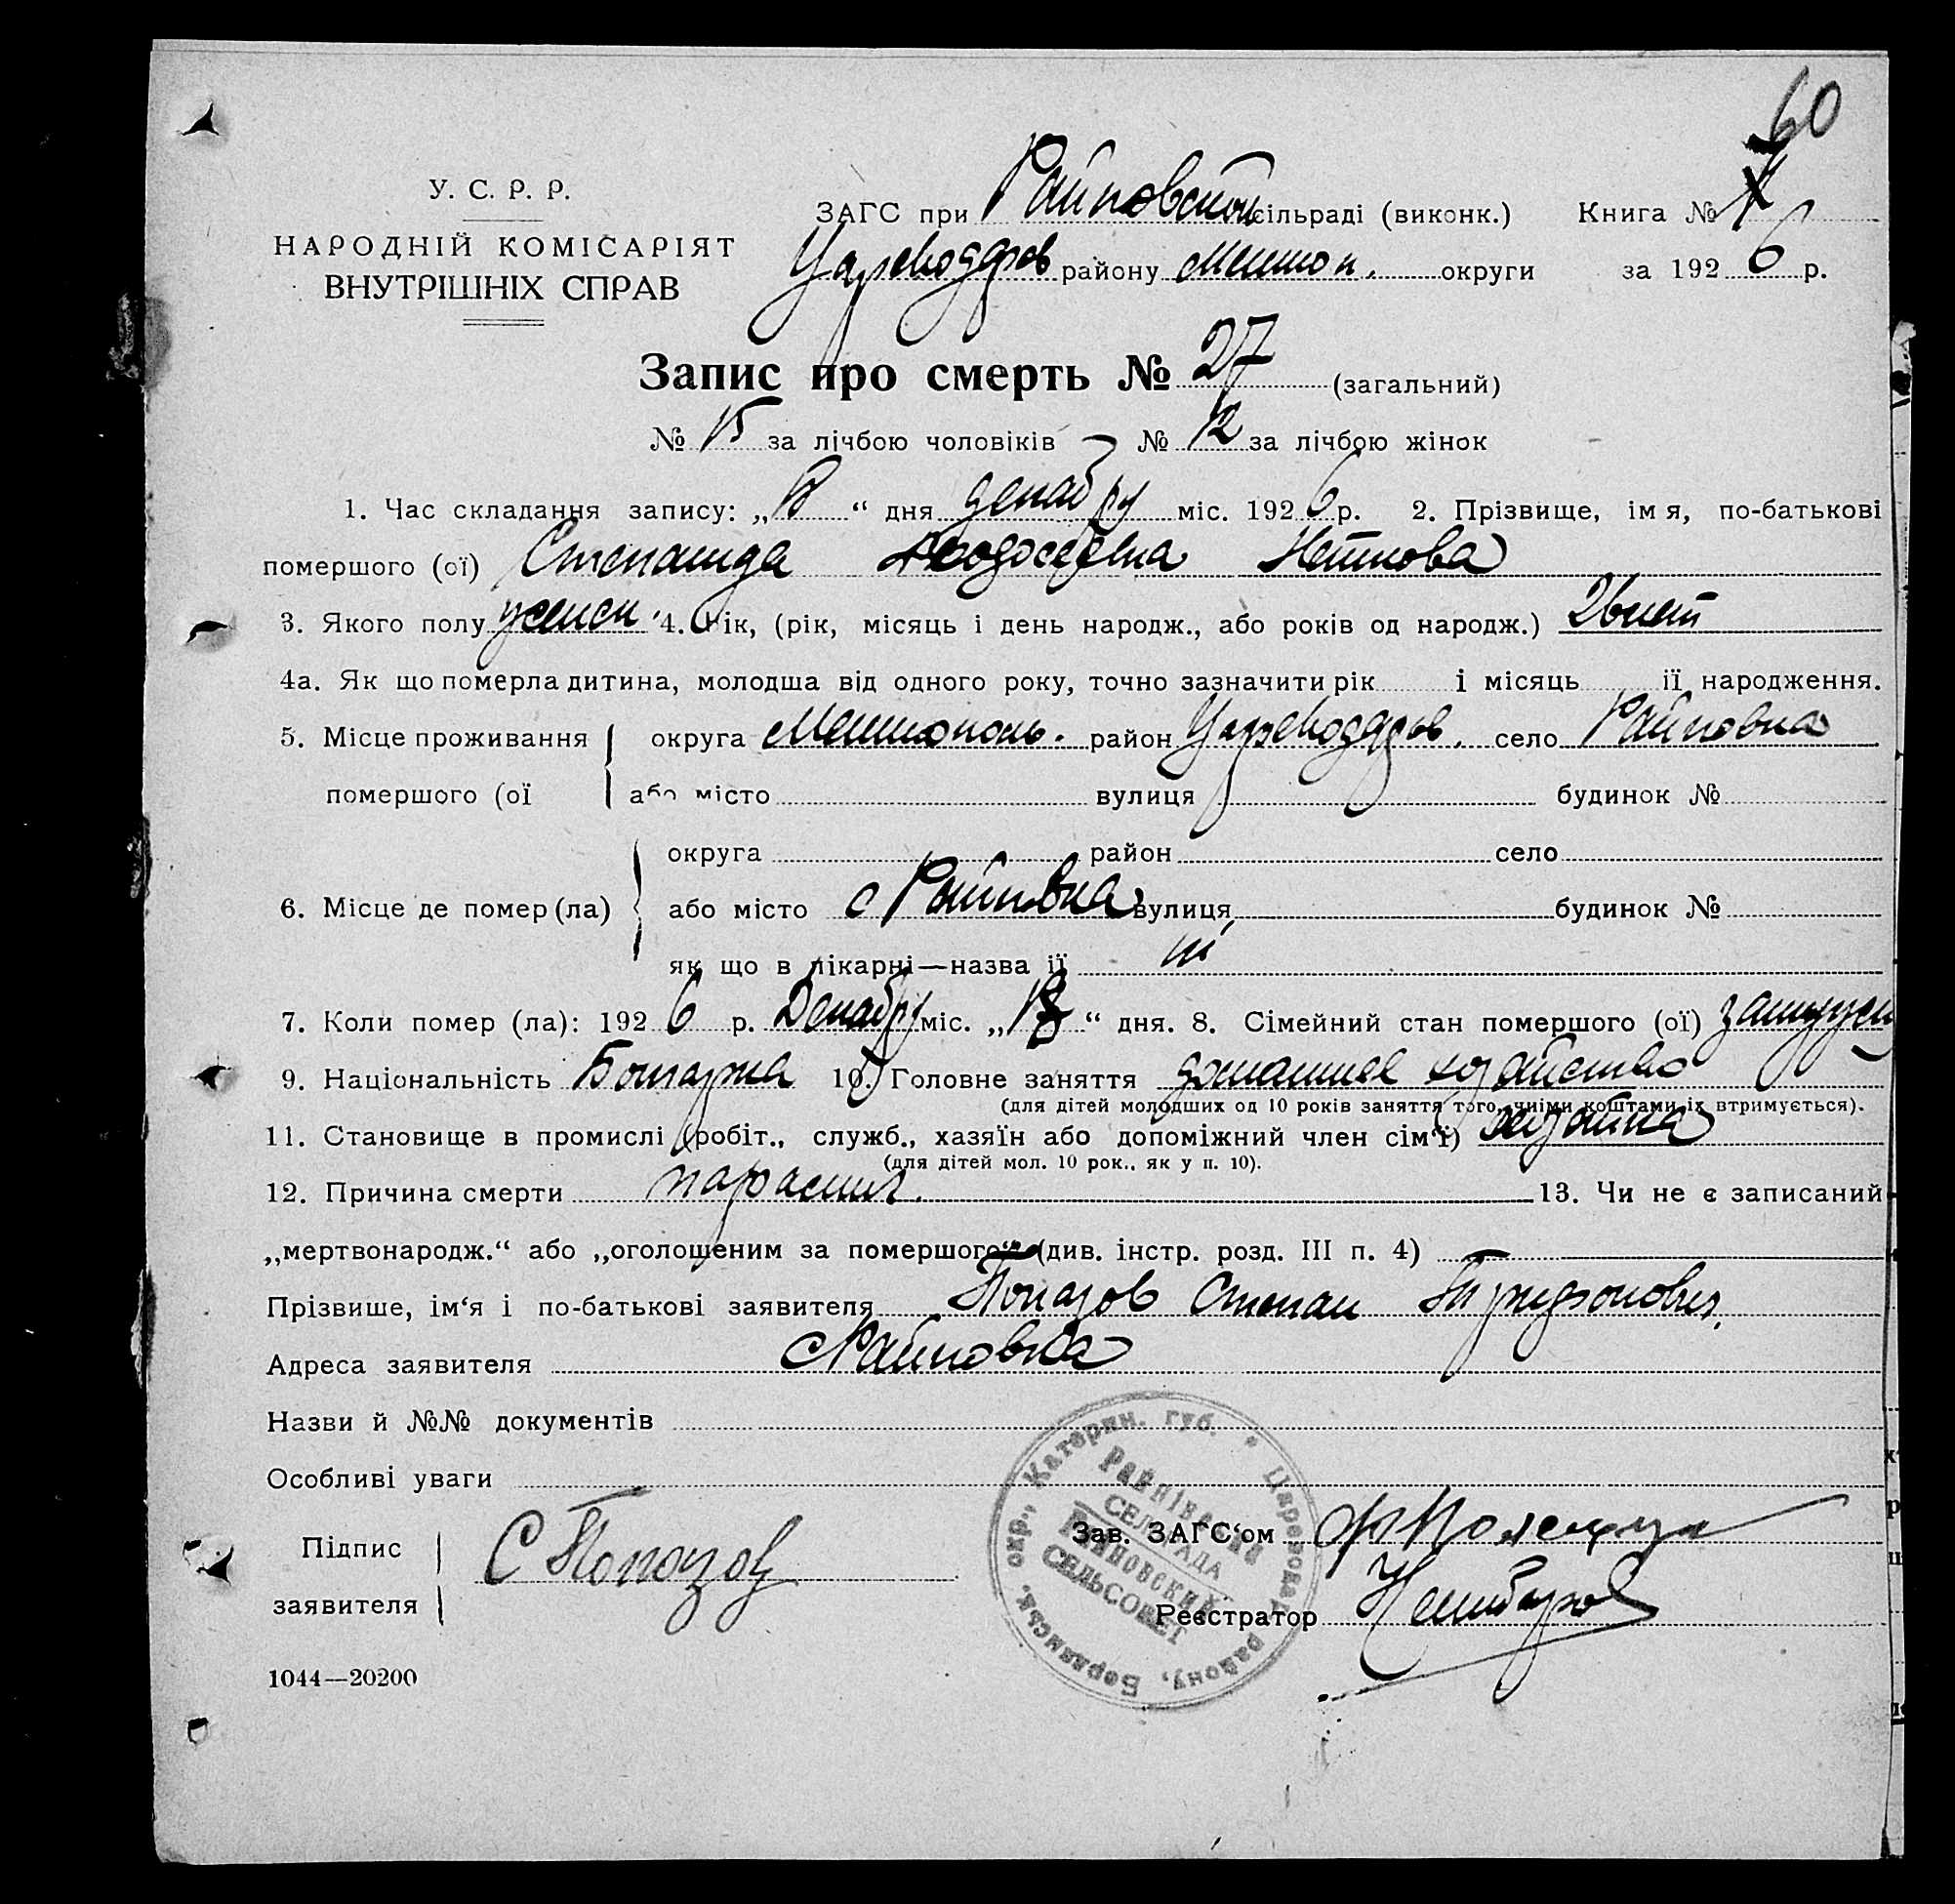 60
У. С. Р. Р.
НАРОДНІЙ КОМІСАРІЯТ
ВНУТРІШНІХ СПРАВ
ЗАГС при Райновском сільраді (виконк.) Книга №
Цареводаров району Мелитоп. округи за 1926 р.
Запис про смерть № 27 (загальний)
№ 15 за лічбою чоловіків № 12 за лічбою жінок
1. Час складання запису: „ “ дня декабру міс. 1926 р. 2. Прізвище, ім я, по-батькові
помершого (ої) Степанида Нейкова
3. Якого полу женск. 4. Рік, (рік, місяць і день народж., або років од народж.) 26 лет
4а. Як що померла дитина, молодша від одного року, точно зазначити рік і місяць її народження.
5. Місце проживання округа Мелитополь. район село Райновка
помершого (ої або місто вулиця будинок №
округа район село
6. Місце де помер (ла) або місто с Райновка вулиця будинок №
як що в лікарні—назва її ні
7. Коли помер (ла): 1926 р. Декабру міс. „ “ дня. 8. Сімейний стан помершого (ої) замужн
9. Національність Болгарка 10. Головне заняття домашнее хозяйство
(для дітей молодших од 10 років заняття того, чиїми коштами їх втримується).
11. Становище в промислі (робіт., служб., хазяїн або допоміжний член сім‘ї) хозяйка
(для дітей мол. 10 рок., як у п. 10).
12. Причина смерти 13. Чи не є записаний
„мертвонародж.“ або „оголошеним за помершого“ (див. інстр. розд. III п. 4)
Прізвише, ім‘я і по-батькові заявителя Попазов Степан Трифонович
Адреса заявителя с Райновка
Назви й №№ документів
Особливі уваги
Підпис
заявителя
С Попазов
Зав. ЗАГС‘ом
Реєстратор
Райнівська
СЕЛЬРАДА
Райновский
СЕЛЬСОВЕТ
Катерин. губ. * Цареводар району, Бердянськ. окр.,
1044—20200